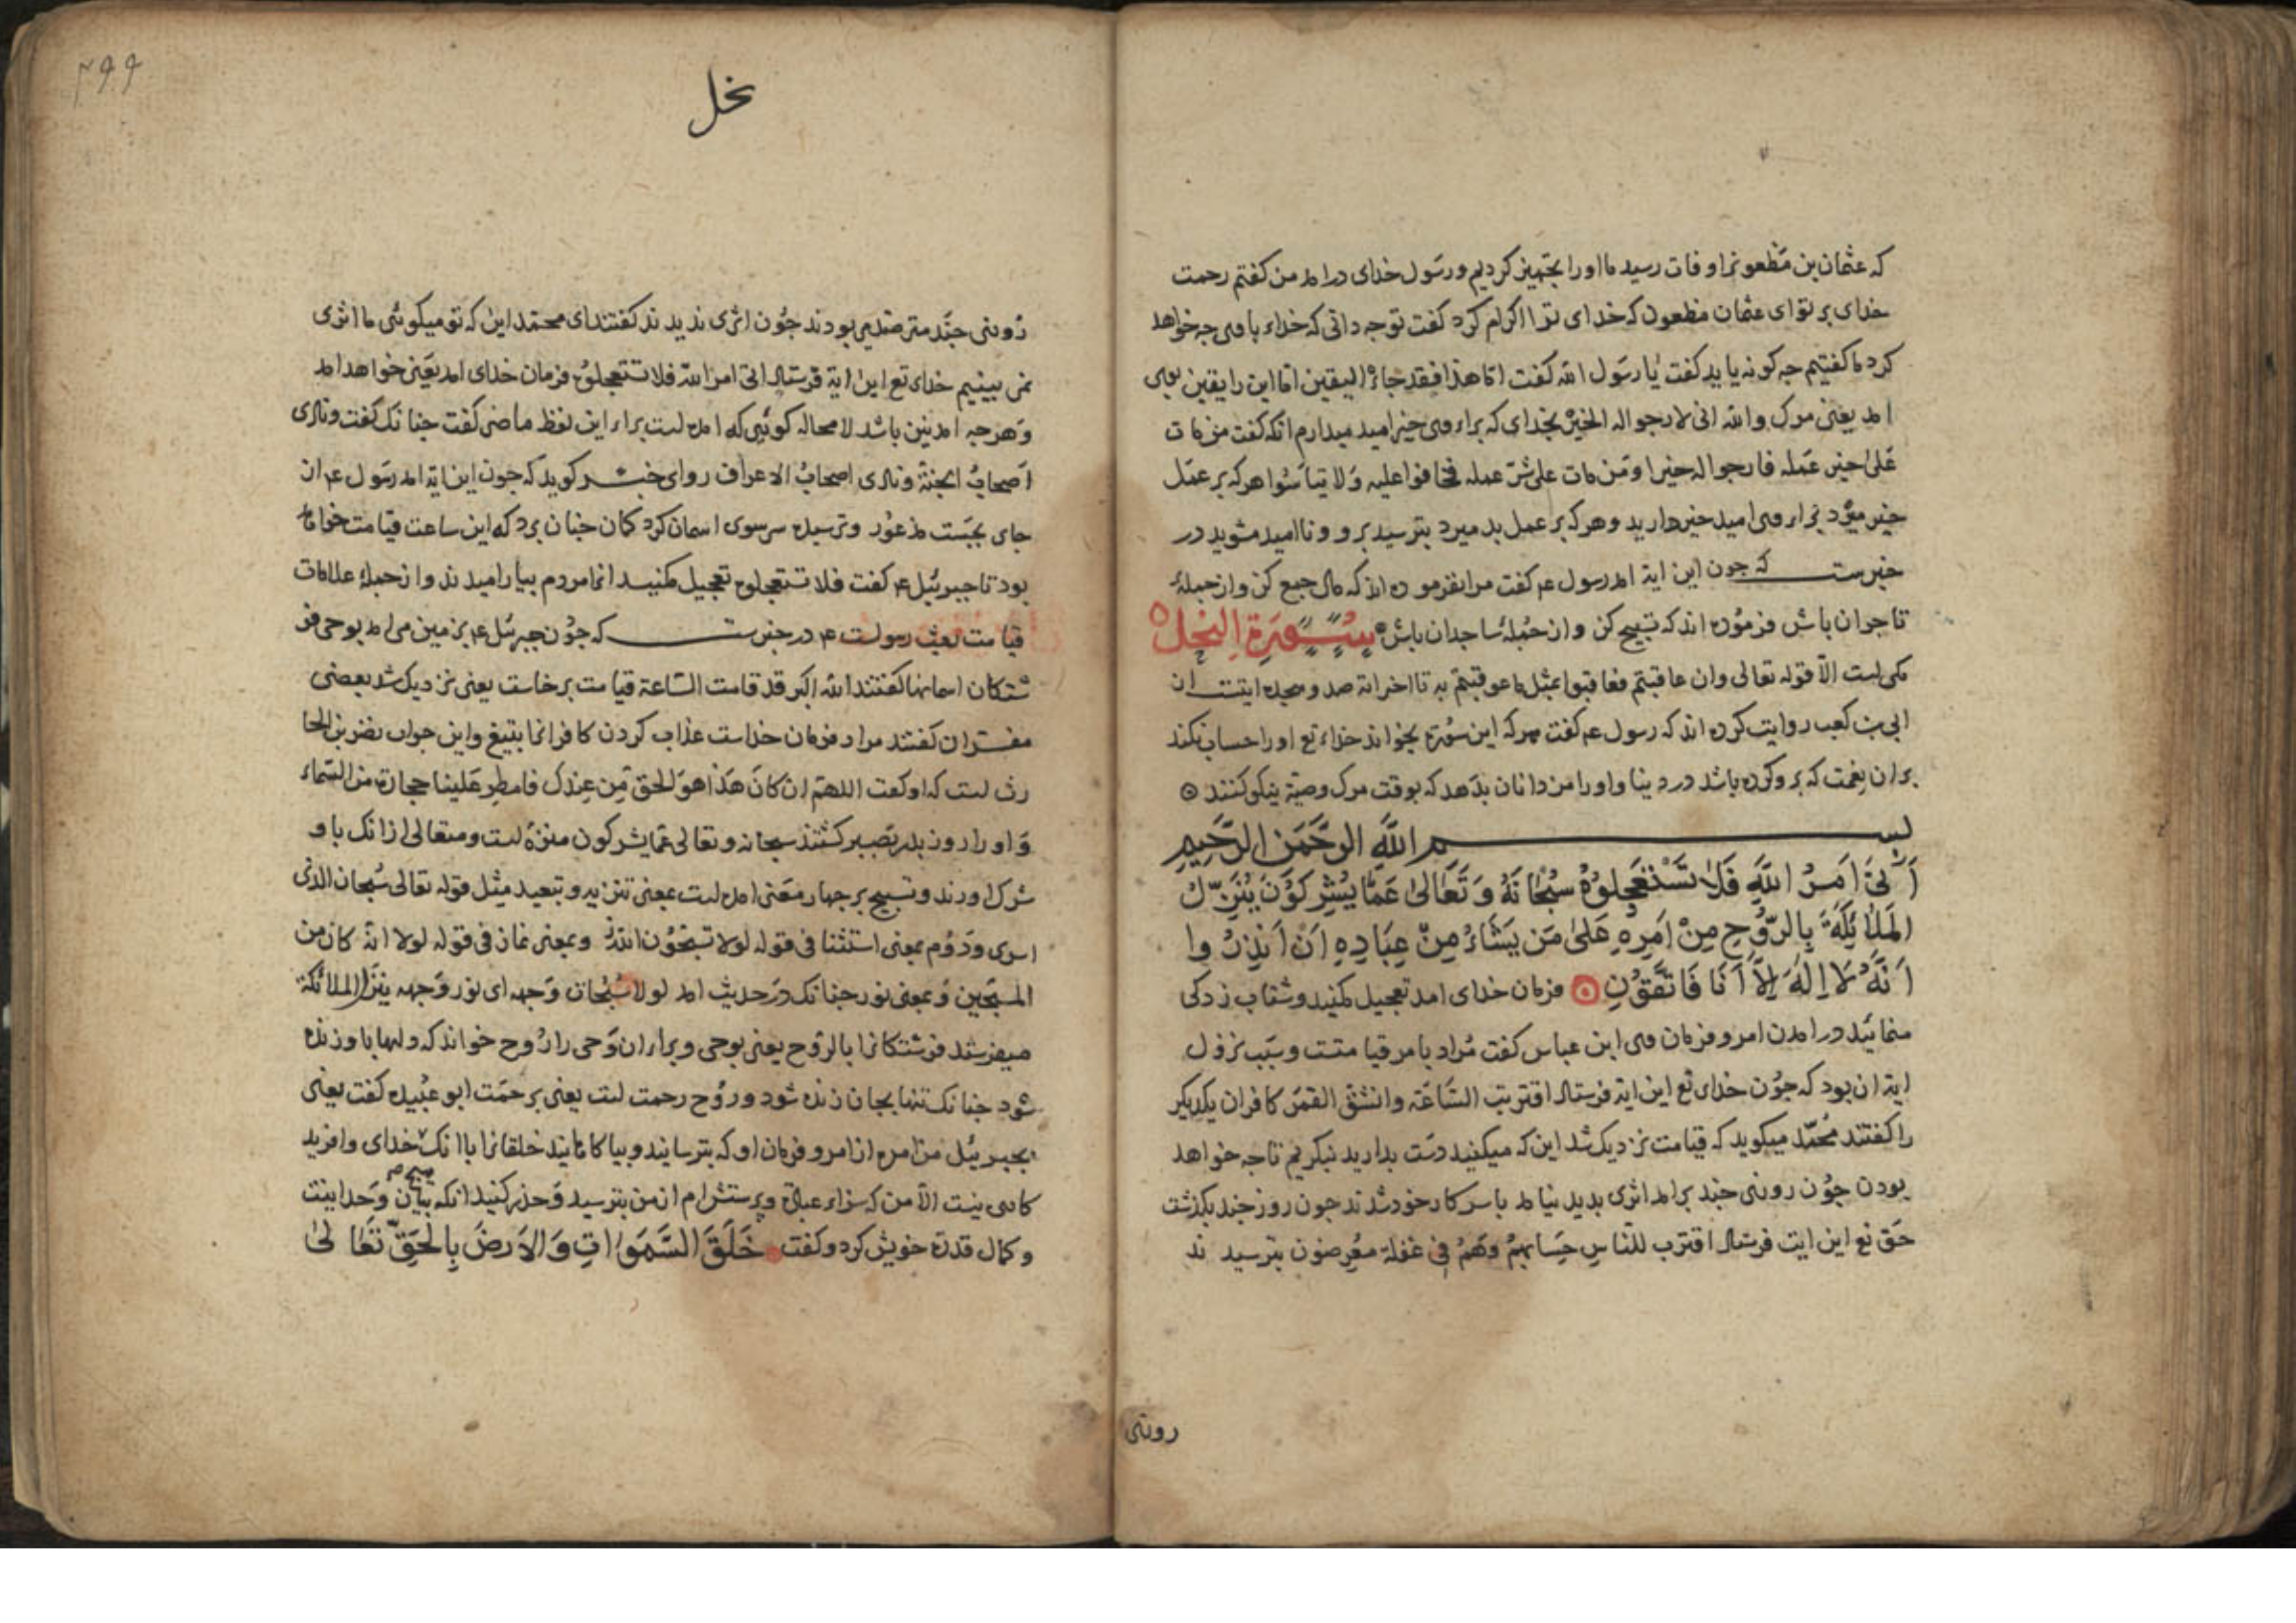 که عثمان بن مظعون را وفات رسید ما او را تجهیز کردیم و رسول خدای در امد من کفتم رحمت
خدای بر تو ای عثمان مظعون که خدای ترا اکرام کرد کفت تو چه دانی که خداء با وی جه خواهد
کرد ما کفتیم جه کونه یا ید کفت یا رسول الله کفت اما هذا فقد جاءه الیقین اما این را یقین بوی
امد یعنی مرک والله انی لارجو اله الخیر بخدای که براء وی خیر امید میدارم انکه کفت من مات
علی خیر عمله فارجوا له خیرا و من مات علی شر عمله فخافوا علیه و لا تیاسوا هر که بر عمل
خیر میرد براء وی امید خیر دارید و هر که بر عمل بد میرد بترسید برو و ناامید مشوید در
خبرست که جون این ایة امد رسول عم کفت مرا نفرموده اند که مال جمع کن و از جملهٔ
تاجران باش فرموده اند که تسبیح کن و از جملهٔ ساجدان باش سورة النحل
مکی است الا قوله تعالی وان عاقبتم فعاقبوا بمثل ما عوقبتم به تا اخر ایة صد و ایتست
ابی بن کعب روایت کرده اند که رسول عم کفت هر که این سورة بخواند خداء تع او را حساب نکند
بران نعمت که برو کرده باشد در دنیا و او را مزد انان بدهد که بوقت مرک وصیة نیکو کنند
بسم الله الرحمن الرحیم
أَتَىٰ أَمْرُ اللَّهِ فَلَا تَسْتَعْجِلُوهُ سُبْحَانَهُ وَتَعَالَىٰ عَمَّا يُشْرِكُونَ يُنَزِّلُ
الْمَلَائِكَةَ بِالرُّوحِ مِنْ أَمْرِهِ عَلَىٰ مَن يَشَاءُ مِنْ عِبَادِهِ أَنْ أَنذِرُوا
أَنَّهُ لَا إِلَٰهَ إِلَّا أَنَا فَاتَّقُونِ فرمان خدای امد تعجیل مکنید و شتاب زدکی
منمائید در امدن امر و فرمان وی ابن عباس کفت مراد بامر قیامتست و سبب نزول
ایة ان بود که جون خدای تع این ایة فرستاد اقتربت الساعة وانشق القمر کافران یکدیکر
را کفتند محمد میکوید که قیامت نزدیک شد این که میکنید دست بدارید تا بنکریم تا جه خواهد
بودن جون روزی جند برامد اثری بدید نیامد باسر کار خود شدند جون روز جند بکذشت
حق تع این ایت فرستاد اقترب للناس حسابهم وهم فی غفلة معرضون بترسید ند
روزی
نحل
روزی جند مترصد می بودند جون اثری ندیدند کفتند ای محمد این که تو میکوئی ما اثری
نمی بینیم خدای تع این ایة فرستاد اتی امر الله فلا تستعجلوه فرمان خدای امد یعنی خواهد امد
و هرجه امدنی باشد لا محاله کوئی که امده است براء این لفظ ماضی کفت جنانک کفت ونادی
اصحاب الجنة ونادی اصحاب الاعراف روای خبر کوید که جون این ایة امد رسول عم از
جای بجست مذعور و ترسیده سر سوی اسمان کرد کمان جنان برد که این ساعت قیامت خواهد
بود تا جبرئیل عم کفت فلا تستعجلوه تعجیل مکنید انما مردم بیارامیدند و از جملهٔ علامات
قیامت بعث رسولست عم در خبرست که جون جبرئیل عم بزمین می امد بوحی فر
شتکان اسمانها کفتند الله اکبر قد قامت الساعة قیامت برخاست یعنی نزدیک شد بعضی
مفسران کفتند مراد فرمان خداست عذاب کردن کافرانرا بتیغ و این جواب نضر بن الحا
رث است که او کفت اللهم ان کان هذا هو الحق من عندک فامطر علینا حجارة من السماء
و او را روز بدر بصبر کشتند سبحانه و تعالی عما یشرکون منزه است و متعالی از انک با و
شرک اورند و تسبیح بر جهار معنی امده است بمعنی تنزیه و تبعید مثل قوله تعالی سبحان الذی
اسری و دوم بمعنی استثنا فی قوله لولا تسبحون الله و بمعنی نماز فی قوله لولا انه کان من
المسبحین و بمعنی نور جنانک در حدیث امد لولا سبحات وجهه ای نور وجهه ینزل الملائکة
میفرستد فرشتکانرا بالروح یعنی بوحی و براء ان وحی را روح خواند که دلها باو زنده
شود جنانک تنها بجان زنده شود و روح رحمت است یعنی برحمت ابو عبیده کفت یعنی
بجبرئیل من امره از امر و فرمان او که بترسانید و بیاکاهانید خلقانرا باانک خدای و افرید
کاری نیست الا من که سزاء عبادة و پرستش ام از من بترسید و حذر کنید انکه بیان وحدانیت
و کمال قدرة خویش کرد و کفت خَلَقَ السَّمَوَاتِ وَالْأَرْضَ بِالْحَقِّ تَعَالَىٰ